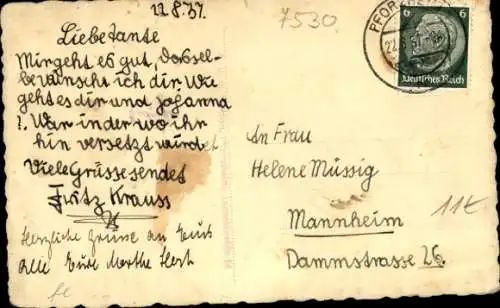 22.8.37.
7530
Liebe Tante
Mir geht es gut, dasssel-
be wünsche ich dir. Wie
geht es dir und Johanna
?. War in der wo ihr
hin versetzt würdet
Viele Grüsse sendet
Fritz Krauss
Herzliche Grüsse an Euch
alle Eure Marthe
PFOR
6
Deutsches Reich
An Frau
Helene Müssig
Mannheim
11€
Dammstrasse 26.